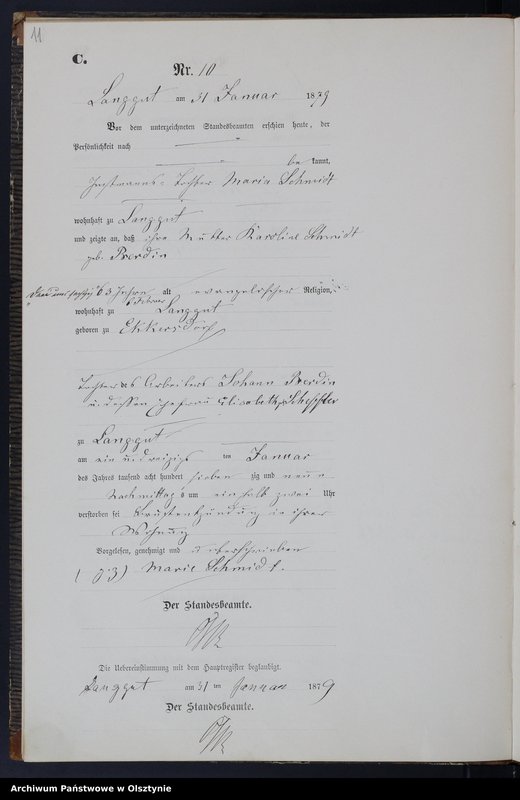 11
C.
Nr. 10
Langgut am 31 Januar 1879
Vor dem unterzeichneten Standesbeamten erschien heute, der
Persönlichkeit nach
be kannt,
Instmanns-Tochter Maria Schmidt
wohnhaft zu Langgut
und zeigte an, daß ihre Mutter Karoline Schmidt
geb. Prerdin
63 Jahre alt evangelischer Religion,
wohnhaft zu Langgut
geboren zu Ekkersdorf
Tochter des Arbeiters Johann Prerdin
u. dessen Ehefrau Elisabeth
zu Langgut
am ein u. dreizigs ten Januar
des Jahres tausend acht hundert sieben zig und neun
Nachmittags um ein halb zwei Uhr
verstorben sei in ihrer
Wohnung
Vorgelesen, genehmigt und unterschrieben
(gz) Marie Schmidt.
Der Standesbeamte.
Die Uebereinstimmung mit dem Hauptregister beglaubigt.
Langgut am 31 ten Januar 1879
Der Standesbeamte.
Archiwum Państwowe w Olsztynie